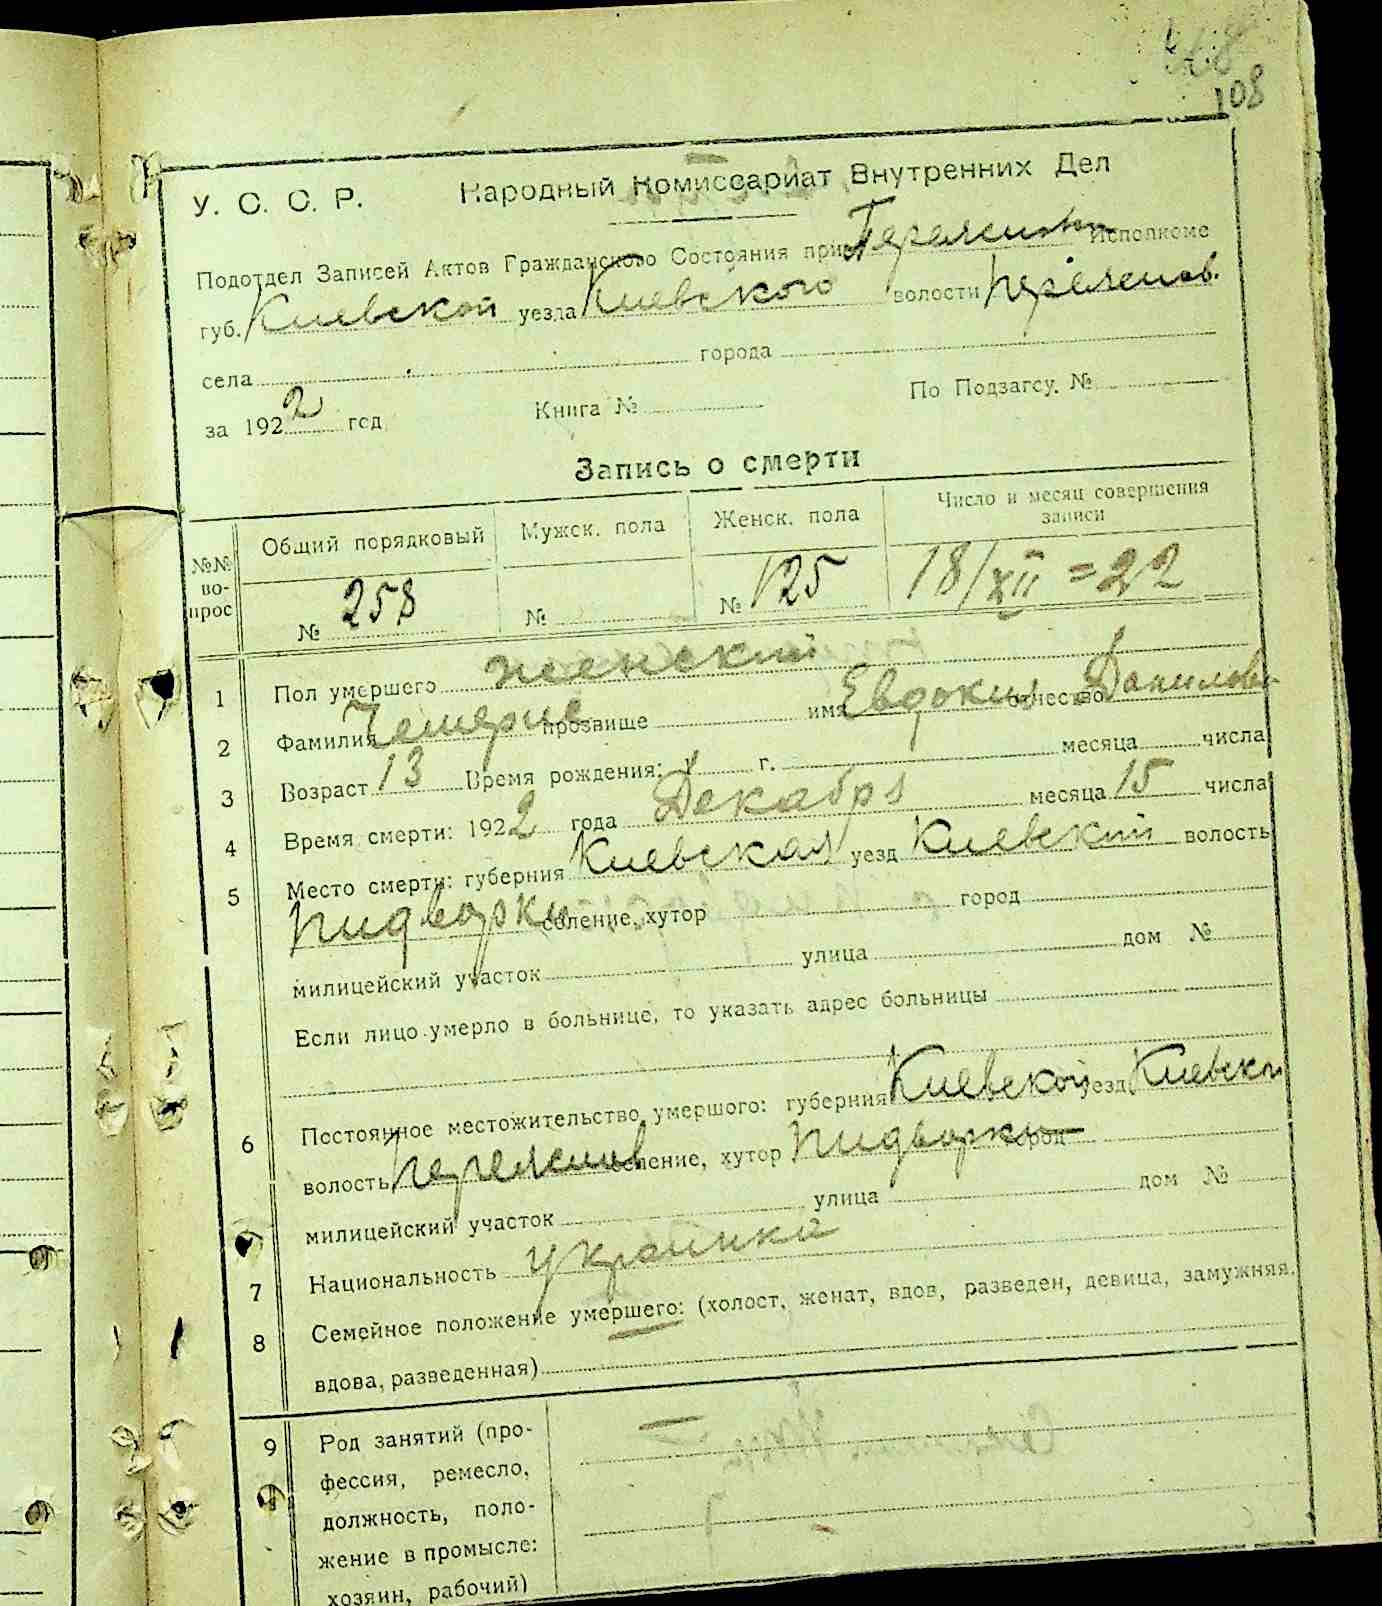 108
У. С. С. Р. Народный Комиссариат Внутренних Дел
Подотдел Записей Актов Гражданского Состояния при Исполкоме
губ. Киевской уезда Киевского волости
села города
за 1922 год Книга № По Подзагсу. №
Запись о смерти
№№ во- прос Общий порядковый Мужск. пола Женск. пола Число и месяц совершения записи
№ 258 № № 125 18/XII = 22
1 Пол умершего женский
2 Фамилия прозвище имя Евдокия отчество Данилов
3 Возраст 13 Время рождения: г. месяца числа
4 Время смерти: 1922 года Декабря месяца 15 числа
5 Место смерти: губерния Киевская уезд Киевский волость
Пидворки селение, хутор город
милицейский участок улица дом №
Если лицо умерло в больнице, то указать адрес больницы
6 Постоянное местожительство умершого: губерния Киевской уезд Киевский
волость селение, хутор Пидворки город
милицейский участок улица дом №
7 Национальность украинка
8 Семейное положение умершего: (холост, женат, вдов, разведен, девица, замужняя,
вдова, разведенная)
9 Род занятий (про-
фессия, ремесло,
должность, поло-
жение в промысле:
хозяин, рабочий)